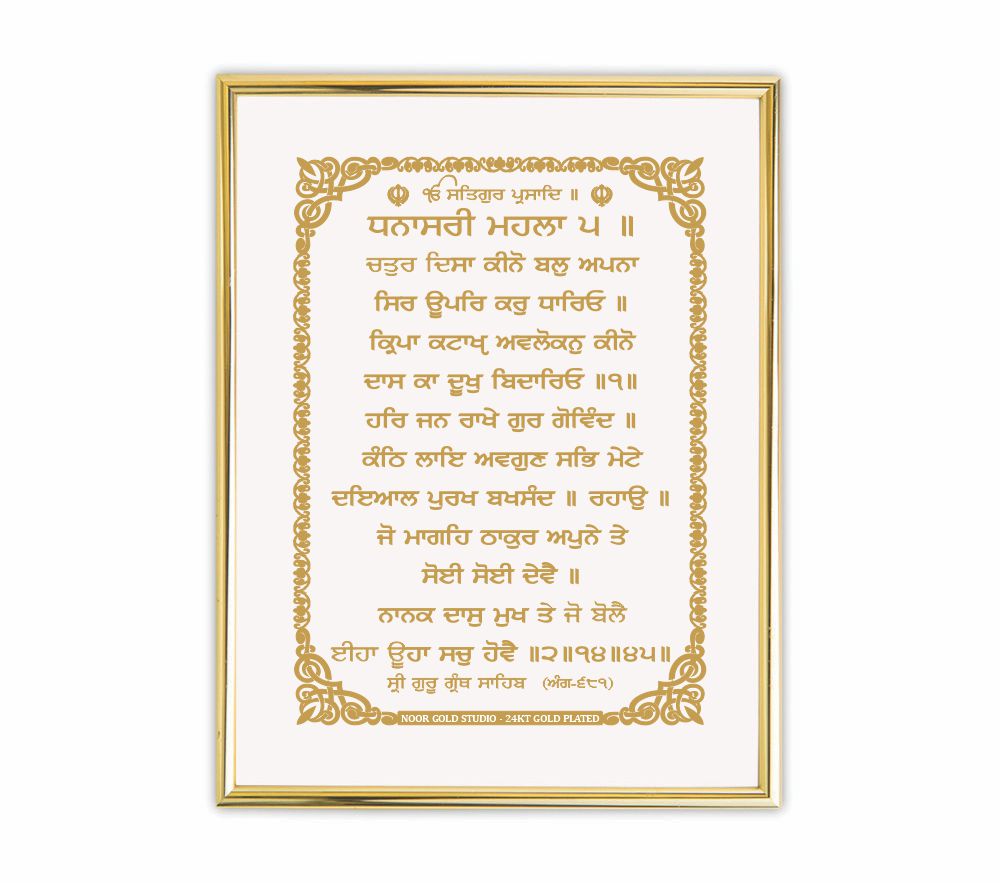 ੴ ਸਤਿਗੁਰ ਪ੍ਰਸਾਦਿ ॥
ਧਨਾਸਰੀ ਮਹਲਾ ੫ ॥
ਚਤੁਰ ਦਿਸਾ ਕੀਨੋ ਬਲੁ ਅਪਨਾ
ਸਿਰ ਊਪਰਿ ਕਰੁ ਧਾਰਿਓ ॥
ਕ੍ਰਿਪਾ ਕਟਾਖੵ ਅਵਲੋਕਨੁ ਕੀਨੋ
ਦਾਸ ਕਾ ਦੂਖੁ ਬਿਦਾਰਿਓ ॥੧॥
ਹਰਿ ਜਨ ਰਾਖੇ ਗੁਰ ਗੋਵਿੰਦ ॥
ਕੰਠਿ ਲਾਇ ਅਵਗੁਣ ਸਭਿ ਮੇਟੇ
ਦਇਆਲ ਪੁਰਖ ਬਖਸੰਦ ॥ ਰਹਾਉ ॥
ਜੋ ਮਾਗਹਿ ਠਾਕੁਰ ਅਪੁਨੇ ਤੇ
ਸੋਈ ਸੋਈ ਦੇਵੈ ॥
ਨਾਨਕ ਦਾਸੁ ਮੁਖ ਤੇ ਜੋ ਬੋਲੈ
ਈਹਾ ਊਹਾ ਸਚੁ ਹੋਵੈ ॥੨॥੧੪॥੪੫॥
ਸ੍ਰੀ ਗੁਰੂ ਗ੍ਰੰਥ ਸਾਹਿਬ (ਅੰਗ-੬੮੧)
NOOR GOLD STUDIO - 24KT GOLD PLATED